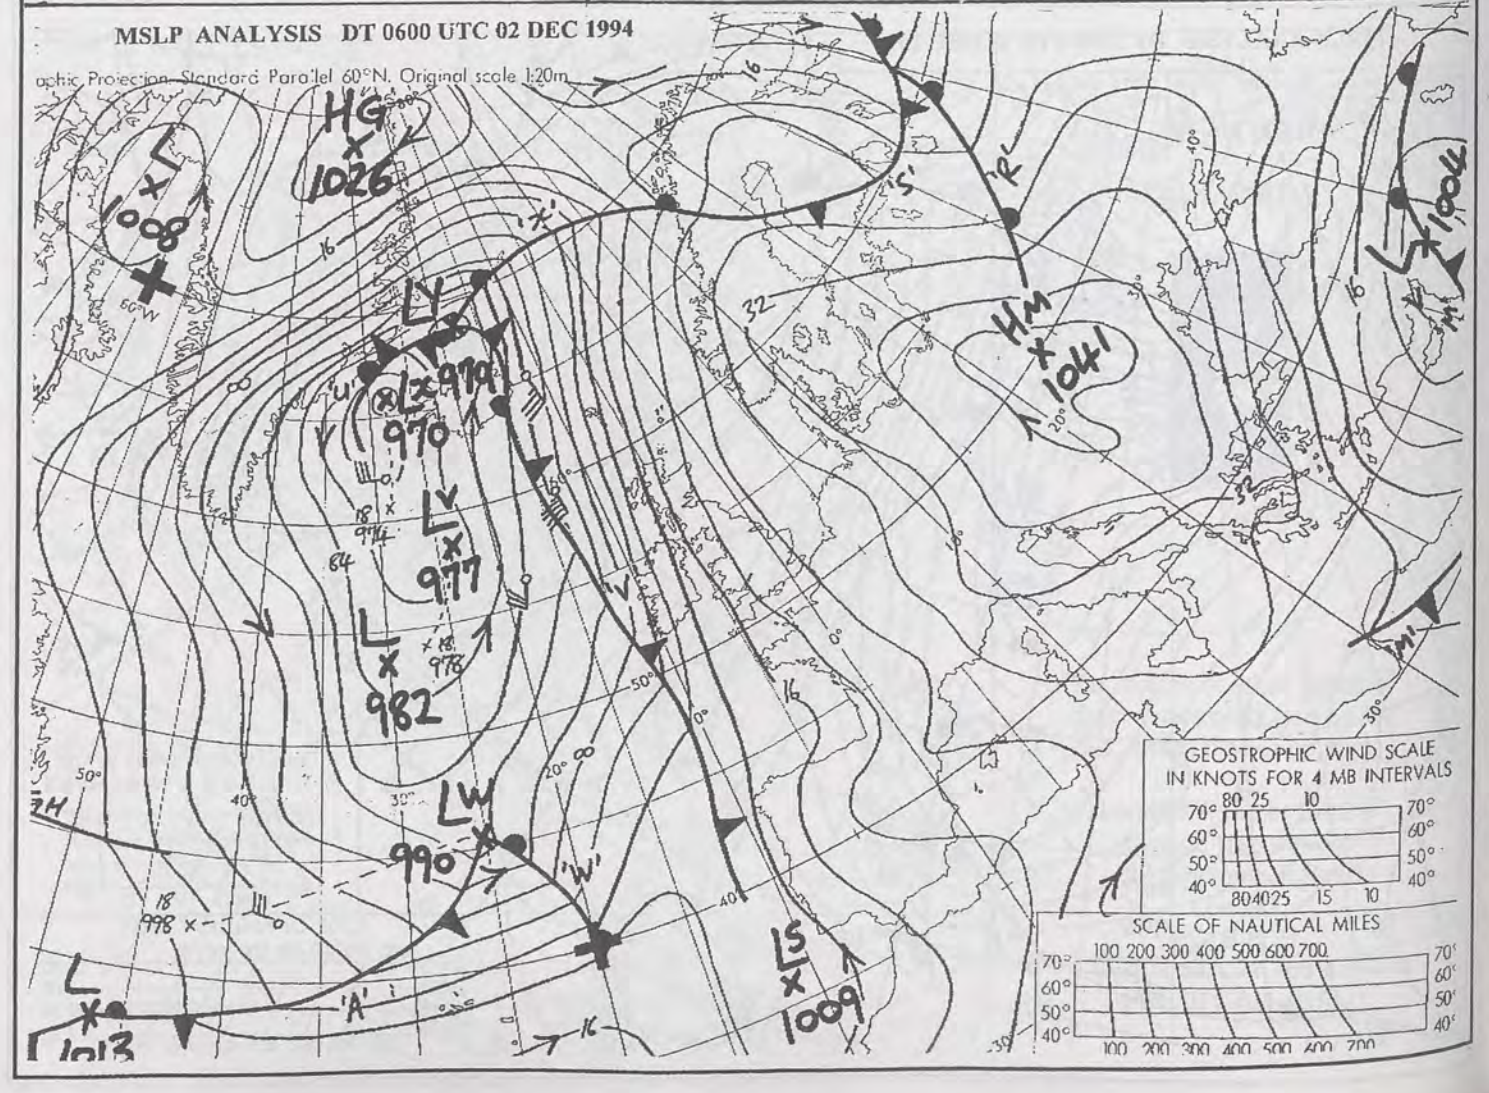 MSLP ANALYSIS DT 0600 UTC 02 DEC 1994
aphic Projection Standard Parallel 60°N. Original scale 1:20m
16
80°
HG
1026
L
1008
60°W
16
'X'
'S'
'R'
40°
L
1004
16
M'
30°
32
HM
1041
20°
LY
979
'U'
Lx
970
8
18
974
84
LV
977
L
982
18
978
60°
'V'
10°
32
0°
50°
0°
16
'M'
30°
50°
40°
30°
20°
8
LW
990
'W'
H
18
998
40°
L
1013
'A'
16
LS
1009
30°
GEOSTROPHIC WIND SCALE
IN KNOTS FOR 4 MB INTERVALS
80 25 10
70° 70°
60° 60°
50° 50°
40° 40°
80 40 25 15 10
SCALE OF NAUTICAL MILES
100 200 300 400 500 600 700
70° 70°
60° 60°
50° 50°
40° 40°
100 200 300 400 500 600 700